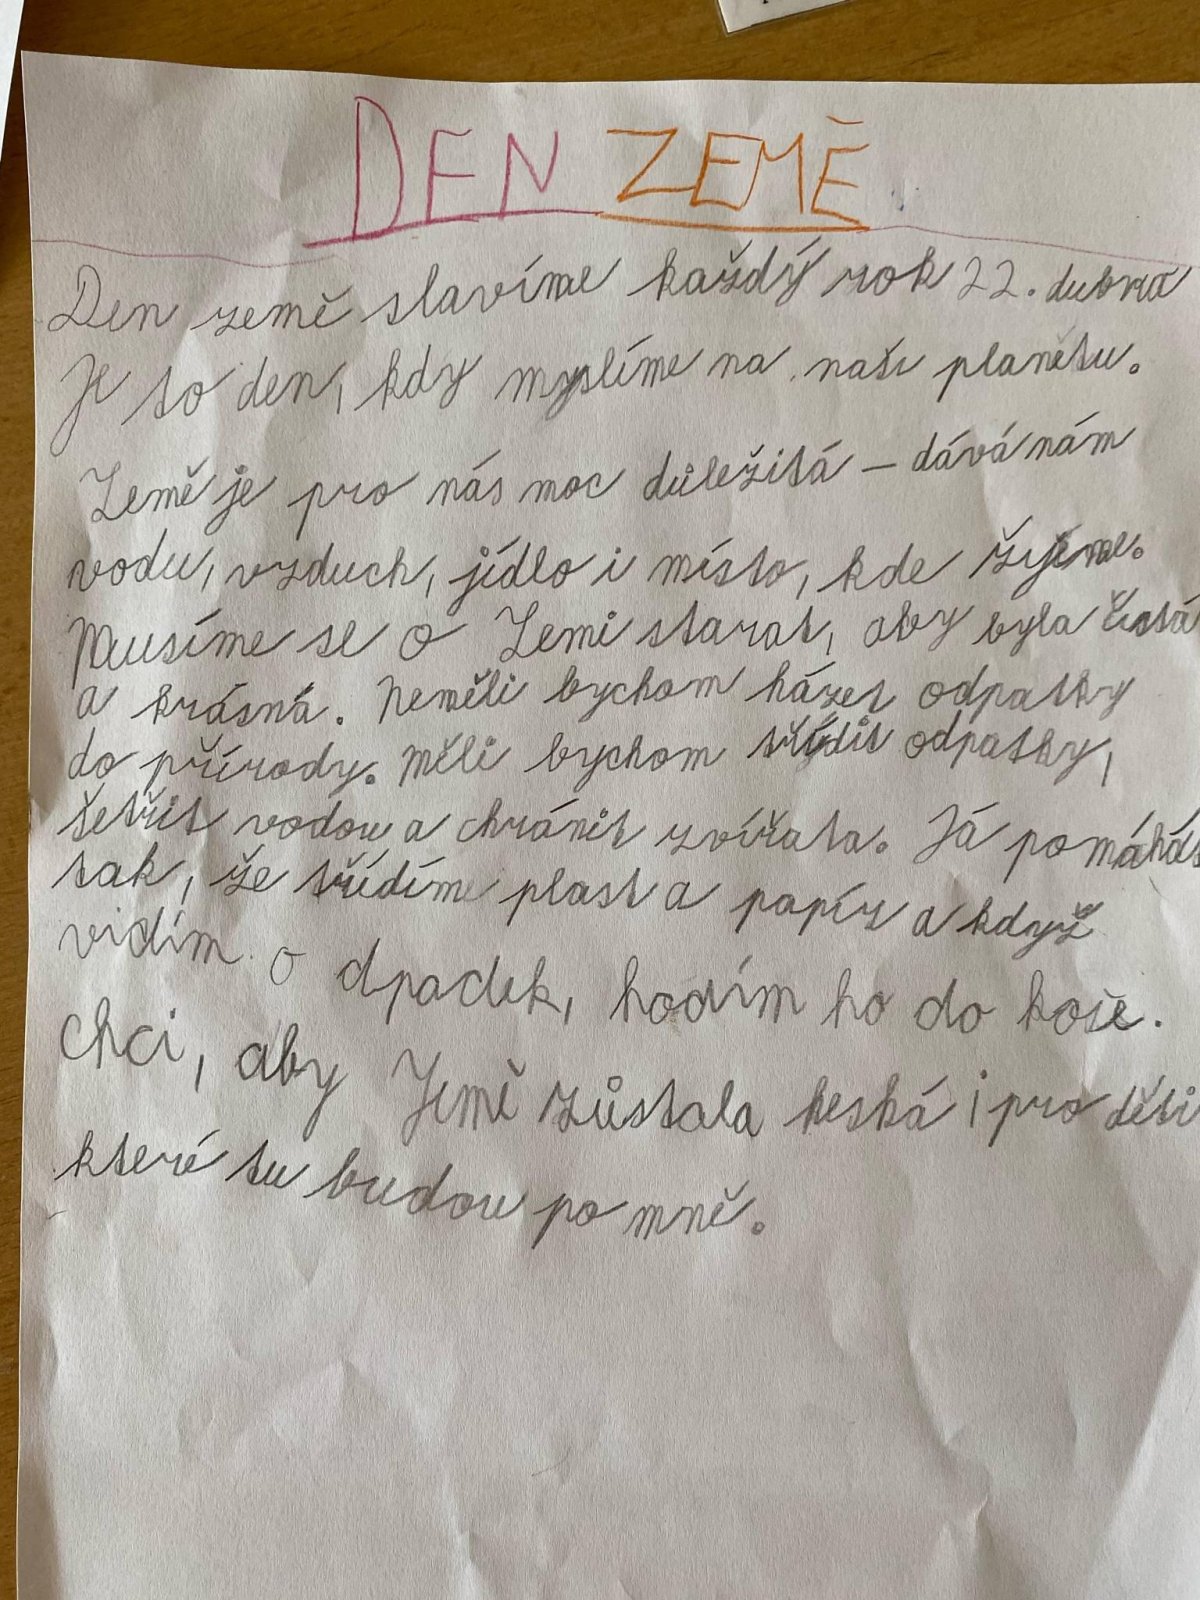 DEN ZEMĚ
Den země slavíme každý rok 22. dubna
Je to den, kdy myslíme na naši planětu.
Země je pro nás moc důležitá – dává nám
vodu, vzduch, jídlo i místo, kde žijeme.
Musíme se o Zemi starat, aby byla čistá
a krásná. Neměli bychom házet odpatky
do přírody. Měli bychom třídit odpatky,
šetřit vodou a chránit zvířata. Já pomáhám
tak, že třídíme plast a papír a když
vidím odpadek, hodím ho do koše.
Chci, aby Země zůstala heská i pro děti
které tu budou po mně.